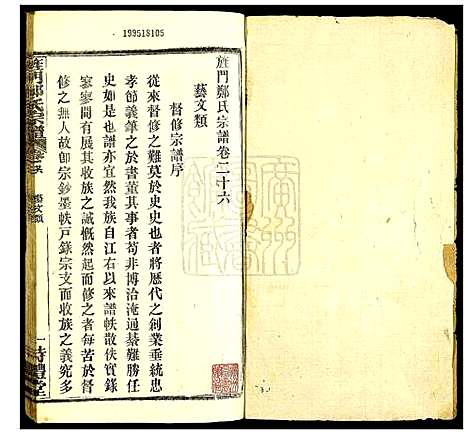 199518105
旌門鄭氏宗譜卷二十六
藝文類
督修宗譜序
從來督修之難莫於史史也者將歷代之創業垂統忠
孝節義筆之於書董其事者苟非博洽淹通綦難勝任
史如是也譜亦宜然我族自江右以來譜帙散佚實錄
寥寥間有展其收族之誠慨然起而修之者每苦於督
修之無人故卽宗鈔墨帙戸錄宗支而收族之義究多
旌門鄭氏宗譜
藝文類
一詩禮堂